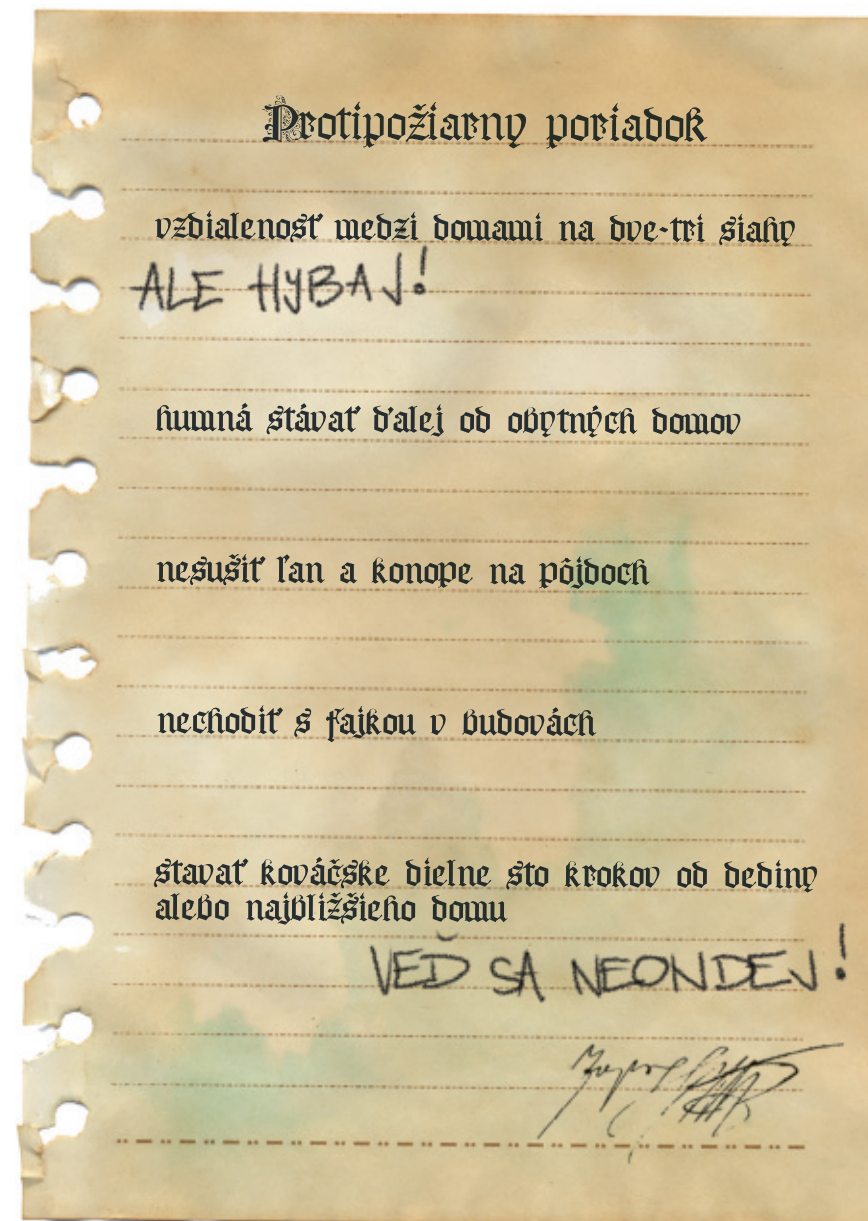 Protipožiarny poriadok
vzdialenosť medzi domami na dve-tri siahy
ALE HYBAJ!
humná stávať ďalej od obytných domov
nesušiť ľan a konope na pôjdoch
nechodiť s fajkou v budovách
stavať kováčske dielne sto krokov od dediny
alebo najbližšieho domu
VEĎ SA NEONDEJ!